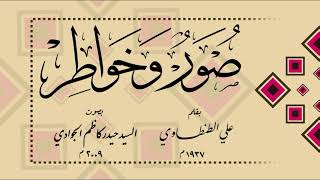 صُوَرٌ وَخَوَاطِرُ
بقلم
علي الطنطاوي
١٩٣٧م
بصوت
السيد حيدر كاظم الجوادي
٢٠٠٩م